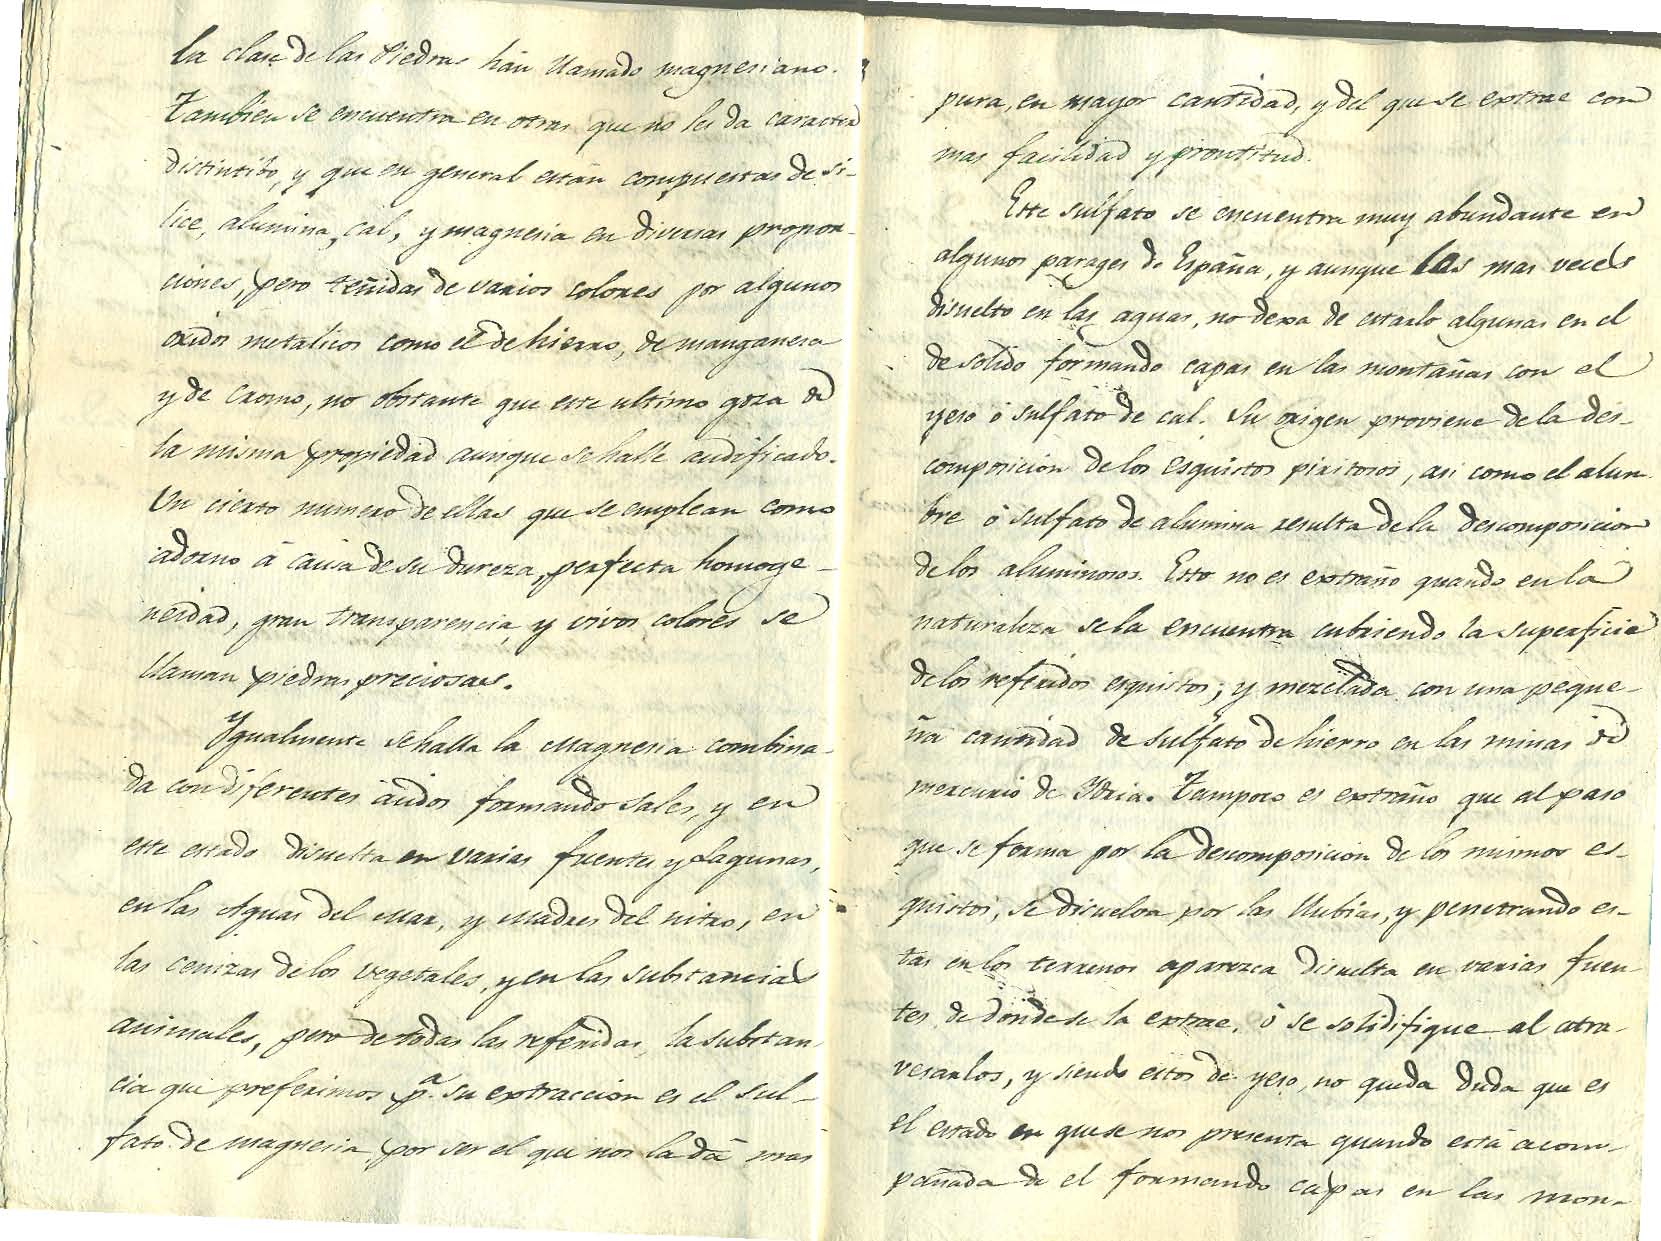 la clase de las Piedras hán llamado magnesiano.
Tambien se encuentra en otras que no les da caracter
distintibo, y que en general están compuestas de sí-
lice, alumina, cal, y magnesia en diversas propor-
ciones, pero teñidas de varios colores por algunos
oxidos metalicos como el de hierro, de manganesa
y de cromo, no obstante que este ultimo goza de
la misma propiedad aunque se halle acidificado.
Un cierto numero de ellas que se emplean como
adorno á causa de su dureza, perfecta homoge-
neidad, gran transparencia, y vivos colores se
llaman piedras preciosas.
Ygualmente se halla la Magnesia combina-
da con diferentes ácidos formando sales, y en
este estado disuelta en varias fuentes y Lagunas,
en las Aguas del Mar, y Madres del nitro, en
las cenizas de los vegetales, y en las substancias
animales, pero de todas las referidas, la substan-
cia que preferimos p.ª su extraccion es el sul-
fato de magnesia, por ser el que nos la dá mas
pura, en mayor cantidad, y del que se extrae con
mas facilidad y prontitud.
Este sulfato se encuentra muy abundante en
algunos parages de España, y aunque las mas veces
disuelto en las aguas, no dexa de estarlo algunas en el
de solido formando capas en las montañas con el
yeso ó sulfato de cal. Su origen proviene de la des-
composicion de los esquistos piritosos, asi como el alum-
bre ó sulfato de alumina resulta de la descomposicion
de los aluminosos. Esto no es extraño quando en la
naturaleza se la encuentra cubriendo la superficie
de los referidos esquistos; y mezclada con una peque-
ña cantidad de sulfato de hierro en las minas de
mercurio de Ydria. Tampoco es extraño que al paso
que se forma por la descomposicion de los mismos es-
quistos, se disuelva por las llubias, y penetrando es-
tas en los terrenos aparezca disuelta en varias fuen-
tes de donde se la extrae, ó se solidifique al atra-
vesarlos, y siendo estos de yeso, no queda duda que es
el estado en que se nos presenta quando está acom-
pañada de el formando capas en las mon-